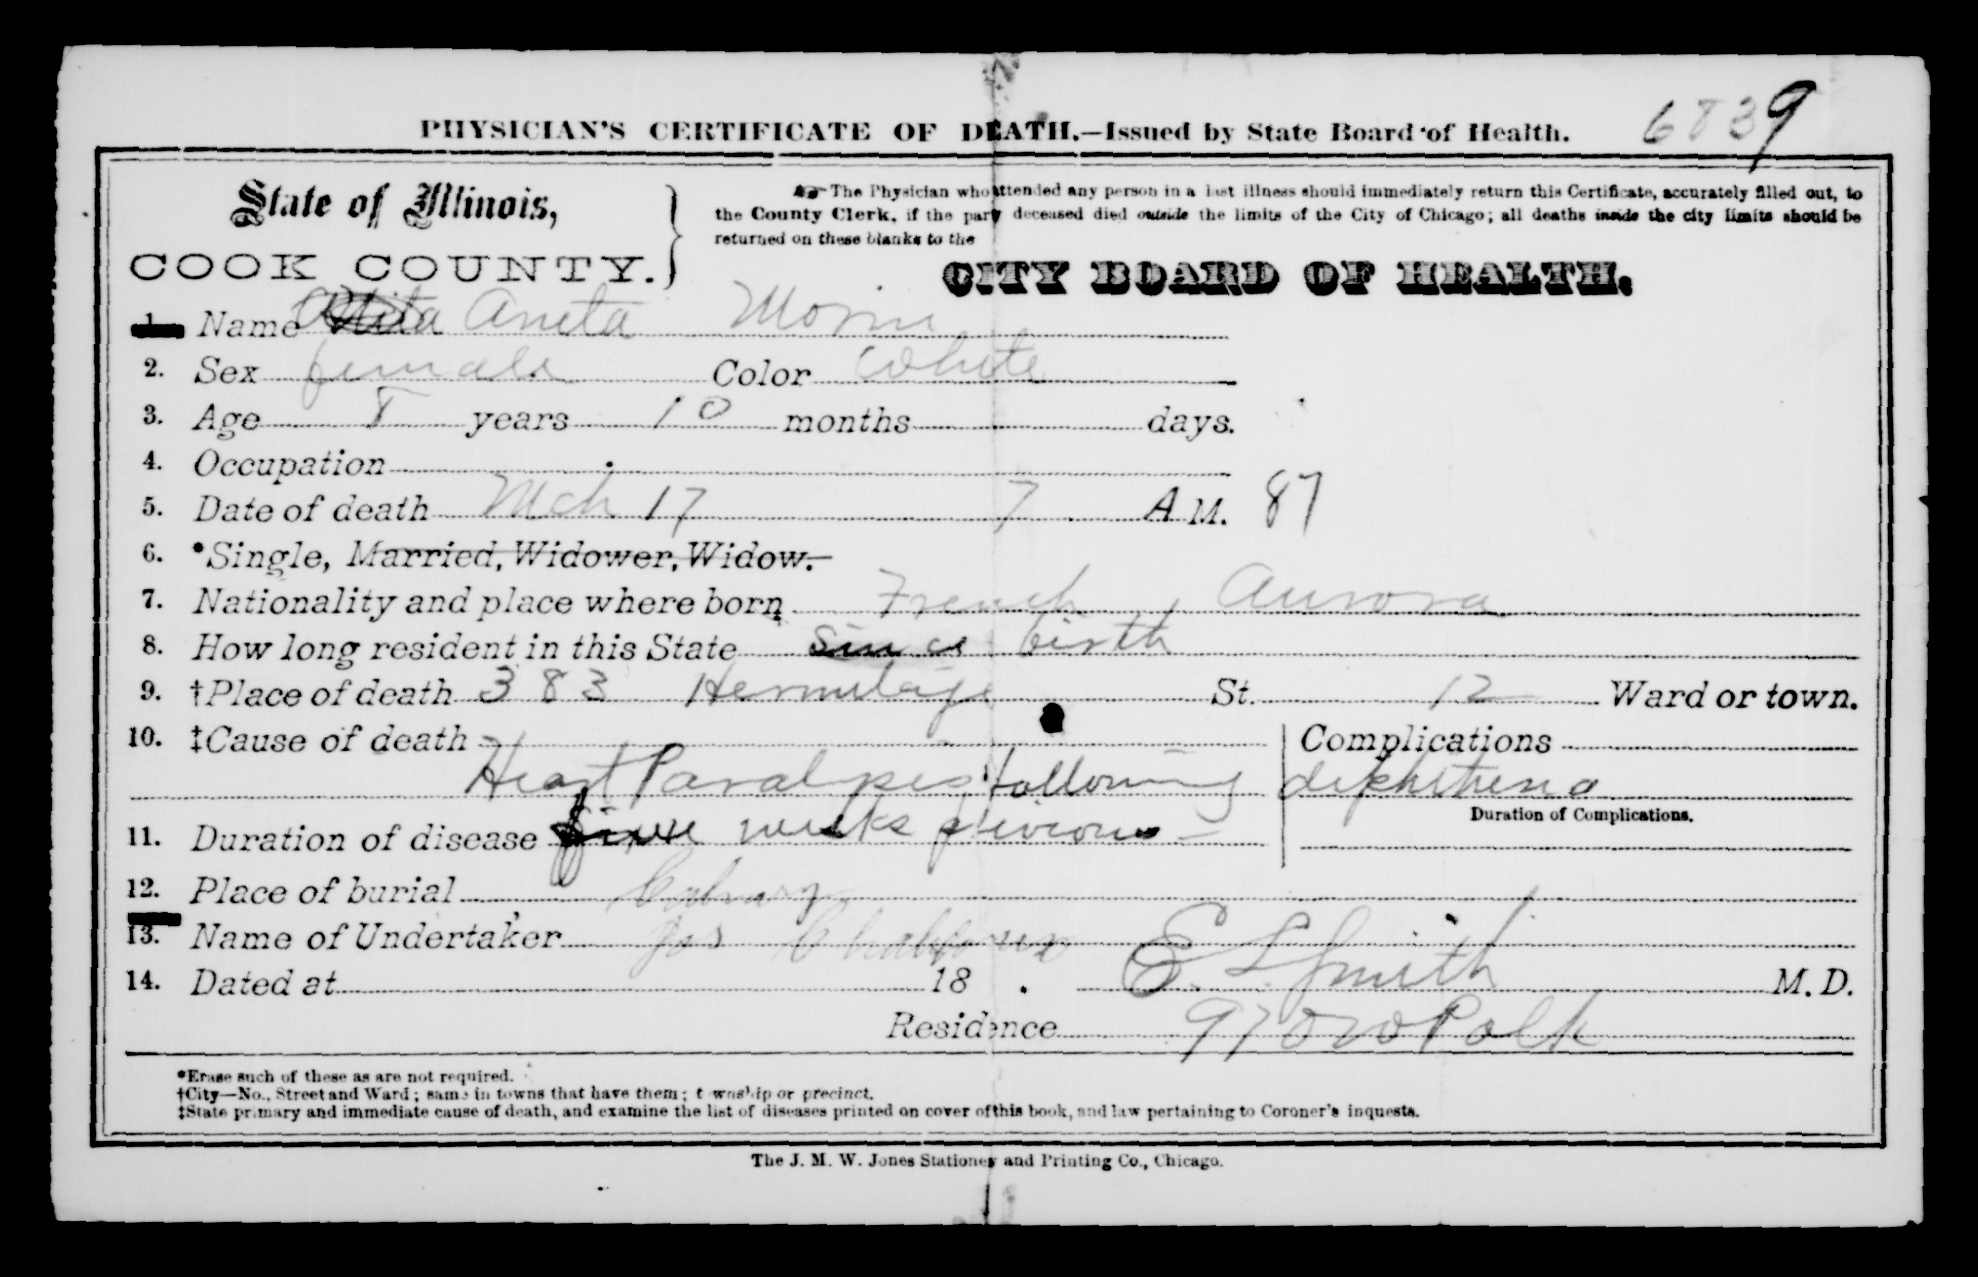 6839
PHYSICIAN'S CERTIFICATE OF DEATH.—Issued by State Board of Health.
State of Illinois,
COOK COUNTY.
The Physician who attended any person in a last illness should immediately return this Certificate, accurately filled out, to
the County Clerk, if the party deceased died outside the limits of the City of Chicago; all deaths inside the city limits should be
returned on these blanks to the
CITY BOARD OF HEALTH.
1. Name Aneta Morin
2. Sex female Color White
3. Age 8 years 10 months days.
4. Occupation
5. Date of death Mch 17 7 A M. 87
6. *Single, Married, Widower, Widow.
7. Nationality and place where born French, Aurora
8. How long resident in this State Since birth
9. †Place of death 383 Hermitage St. 12 Ward or town.
10. ‡Cause of death Complications
Heart Paralysis following diphtheria
Duration of Complications.
11. Duration of disease five weeks previous
12. Place of burial Calvary
13. Name of Undertaker Jos
14. Dated at 18 . E. S. Smith M. D.
Residence 970 W Polk
*Erase such of these as are not required.
†City—No., Street and Ward; same in towns that have them; township or precinct.
‡State primary and immediate cause of death, and examine the list of diseases printed on cover of this book, and law pertaining to Coroner's inquests.
The J. M. W. Jones Stationery and Printing Co., Chicago.